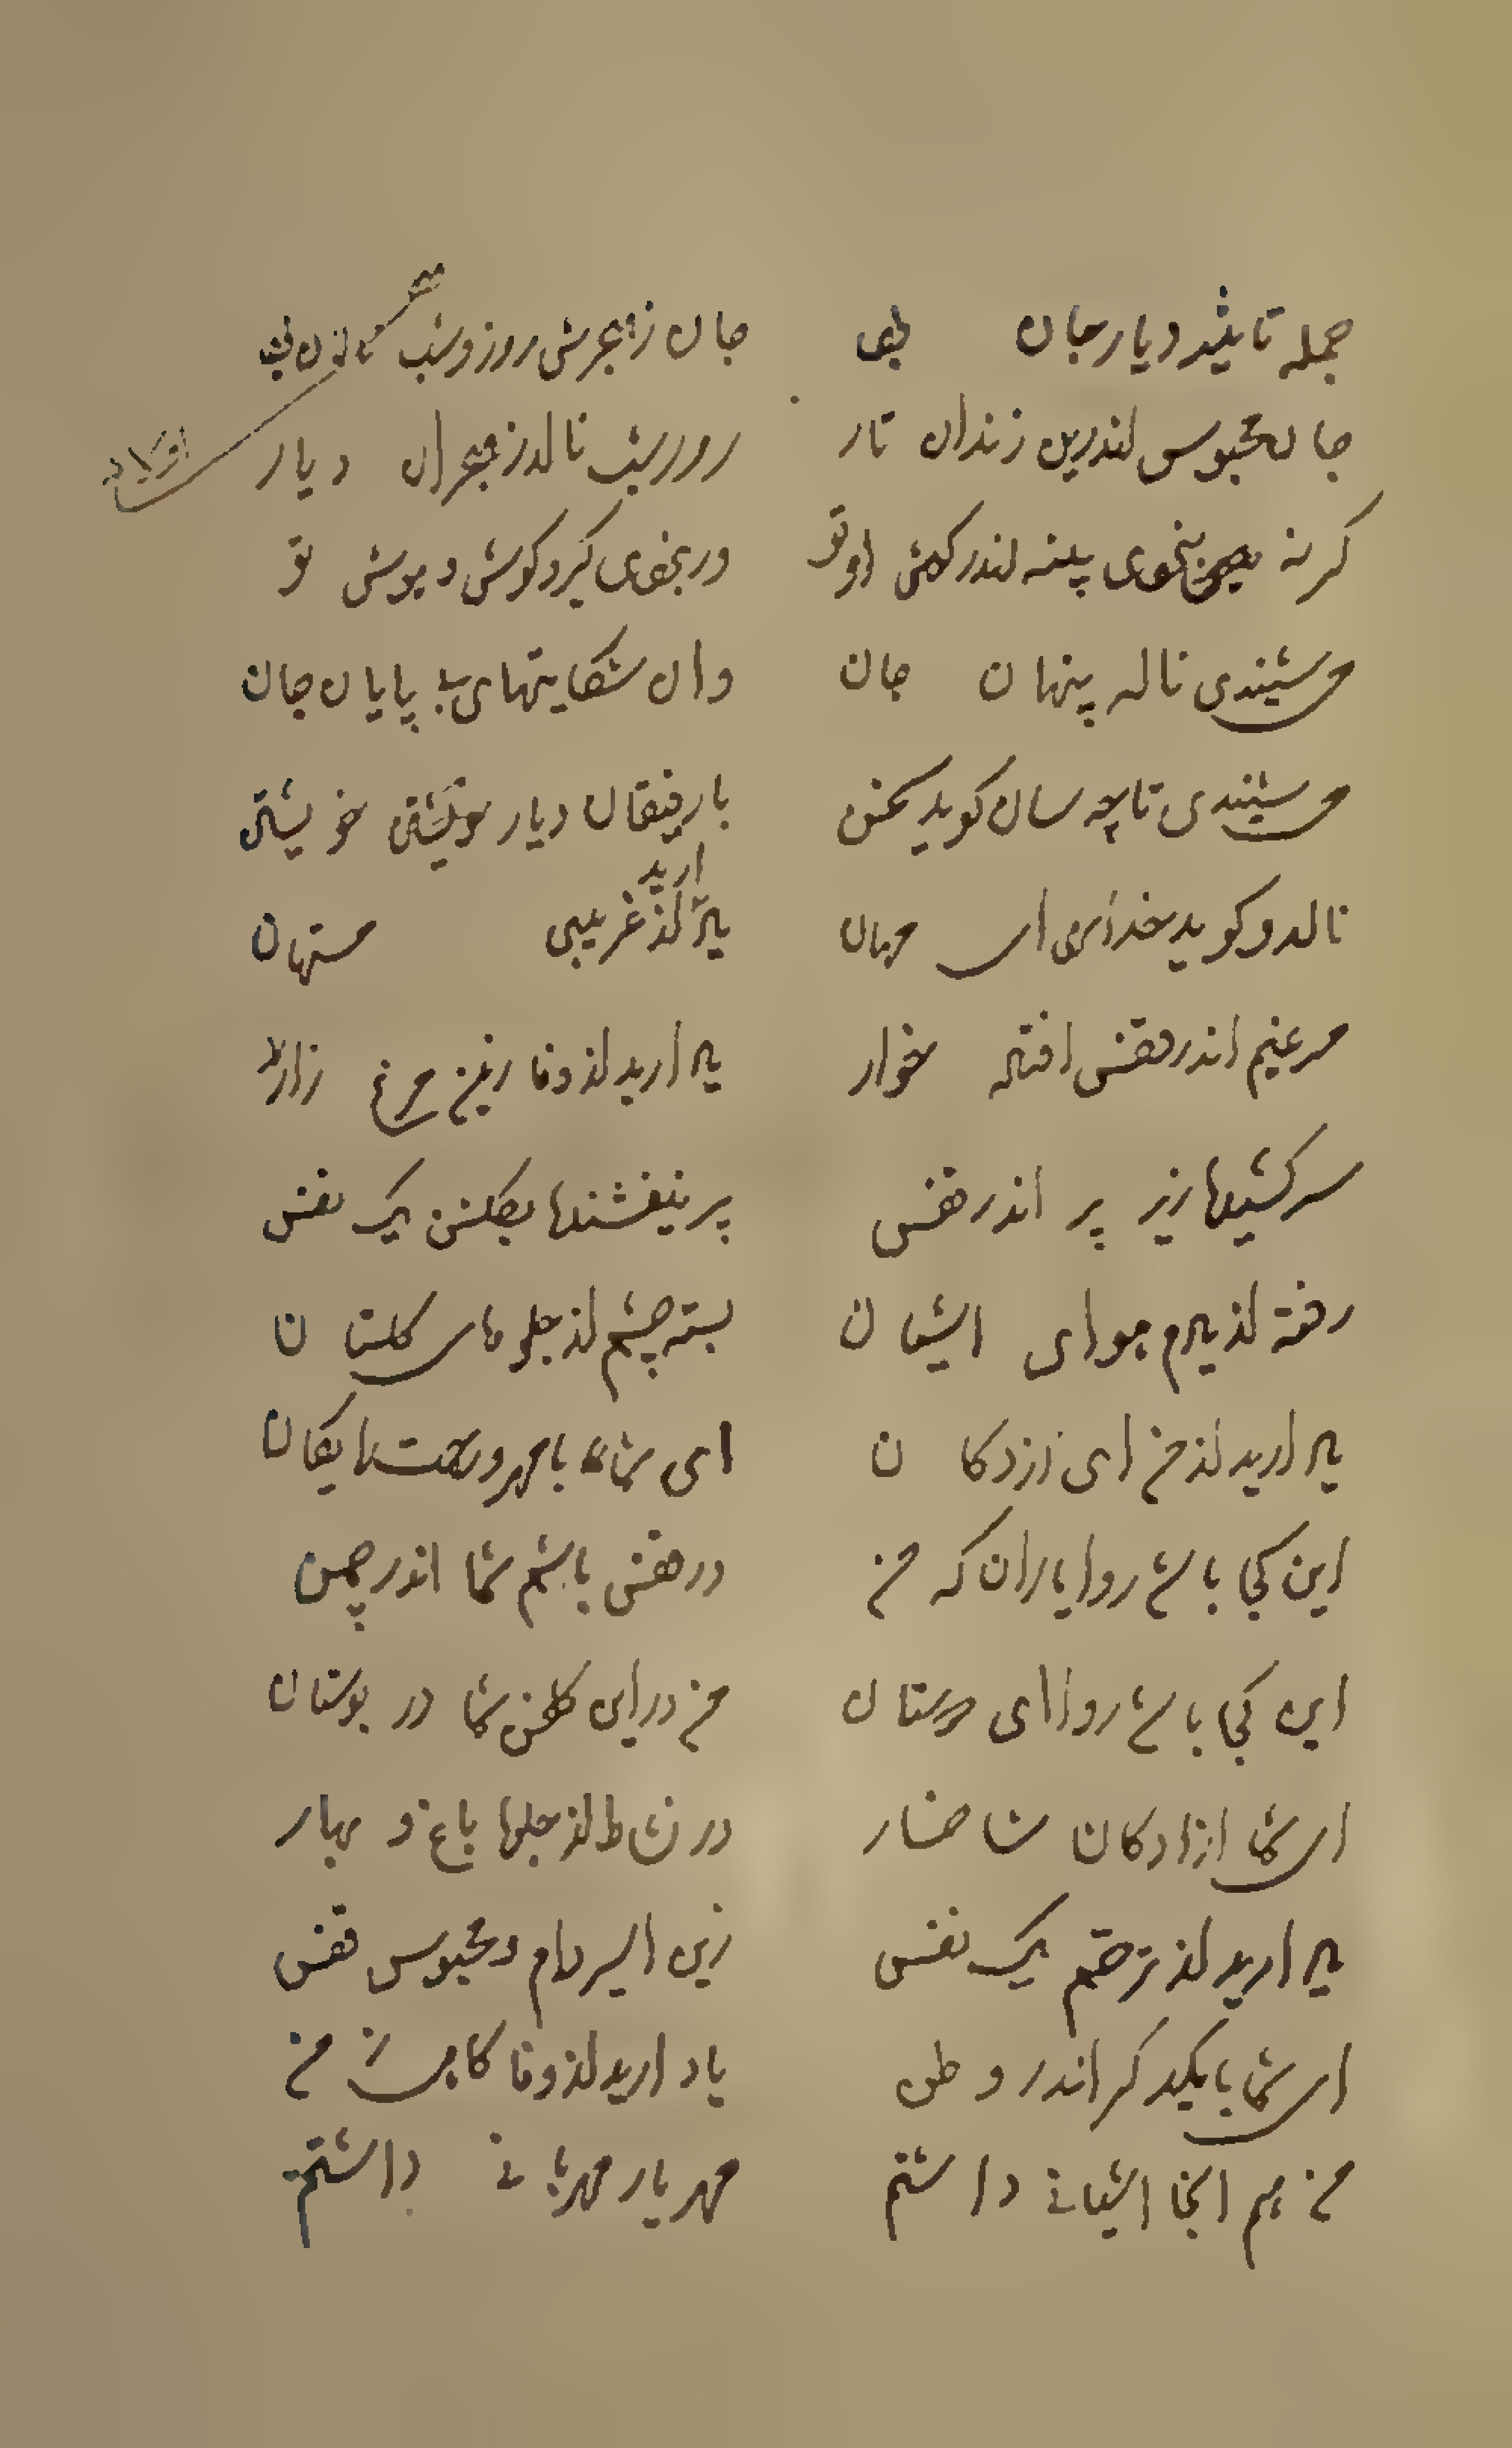 جمله تاثیر دیار جان بود جان ز هجرش روز و شب نالان بود
جان محبوس اندرین زندان تار روز و شب نالد ز هجران دیار
کر نه پنبه اندر کوش او تو ور نبودی کرد کوش و هوش تو
می شنیدی ناله پنهان جان وان شکایتهای بی پایان جان
می شنیدی تا چه سان کوید سخن با رفیقان دیار خویشتن
نالد و کوید خدا را ای مهان یاد ارید از غریبی مستهان
مرغیم اندر قفس افتاده خوار یاد ارید از وفا زین مرغ زار
سر کشیدها زیر پر اندر قفس پر نیفشندها بکلشن یک نفس
رفته از یادم هوای اشیان بسته چشم از جلوهای کلستان
یاد ارید از من ای ازادکان ای شما با مهر و رحمت
این کجا باشد روا یاران که من در قفس باشم شما اندر چمن
این کجا باشد روا ای دوستان من در این کلخن شما در بوستان
ای شما ازادکان شاخسار در نشاط از جلوها باغ و بهار
یاد ارید از ترحم یک نفس زین اسیر دام و محبوس قفس
ای شما با یکدکر اندر وطن یاد ارید از وفا کاهی ز من
من هم انجا اشیانی داشتم مهر یار مهربانی داشتم